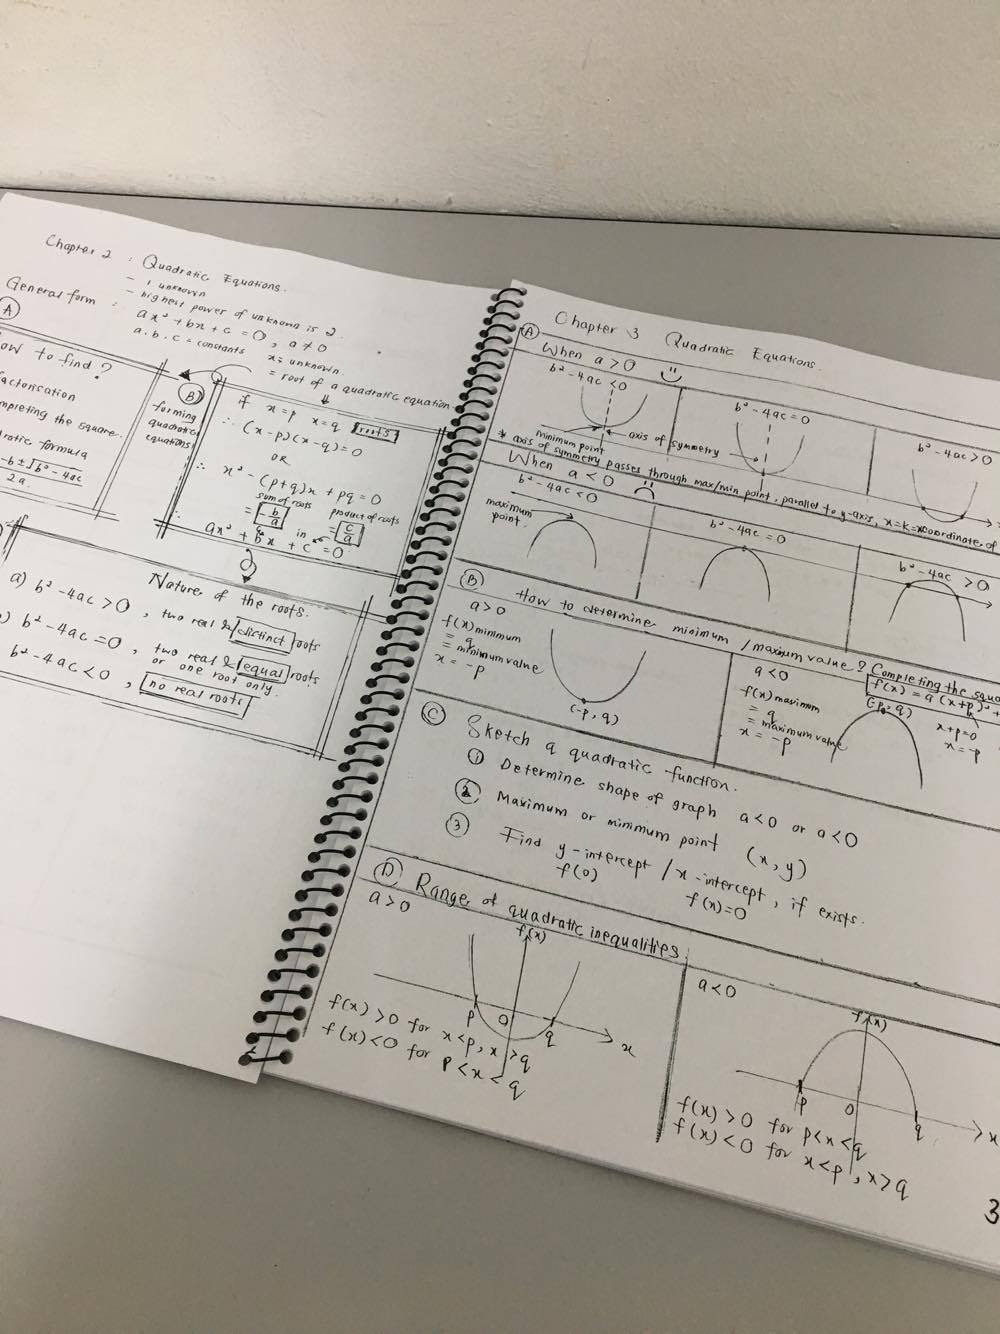 Chapter 2 : Quadratic Equations.
- 1 unknown
- highest power of unknown is 2
General form : ax² + bx + c = 0, a ≠ 0
a. b. c = constants
x = unknown
= root of a quadratic equation
A
to find?
the square.
formula
-b ± √b² - 4ac
2a
B
forming
quadratic
equations
if x = p x = q roots
∴ (x-p)(x-q) = 0
OR
∴ x² - (p+q)x + pq = 0
sum of roots product of roots
= -b/a = c/a
in
ax² + bx + c = 0
Nature of the roots.
a) b² - 4ac > 0, two real & distinct roots
) b² - 4ac = 0, two real & equal roots
or one root only.
b² - 4ac < 0, no real roots
Chapter 3 Quadratic Equations
A When a > 0
b² - 4ac < 0
b² - 4ac = 0
b² - 4ac > 0
minimum point
axis of symmetry
* axis of symmetry passes through max/min point, parallel to y-axis, x = k = xcoordinate of
When a < 0
b² - 4ac < 0
b² - 4ac = 0
b² - 4ac > 0
maximum
point.
B How to determine minimum / maximum value? Completing the
a > 0
f(x) minimum
= q
= minimum value
x = -p
(-p, q)
a < 0
f(x) = a(x+p)² +
f(x) maximum
= q
= maximum value
x = -p
(-p, q)
x+p=0
x=-p
C Sketch a quadratic function.
1 Determine shape of graph a < 0 or a < 0
2 Maximum or minimum point (x, y)
3 Find y-intercept / x-intercept, if exists.
f(0) f(x)=0
D Range of quadratic inequalities
a > 0
f(x)
p 0 q x
f(x) > 0 for x < p, x > q
f(x) < 0 for p < x < q
a < 0
f(x)
p 0 q x
f(x) > 0 for p < x < q
f(x) < 0 for x < p, x > q
3